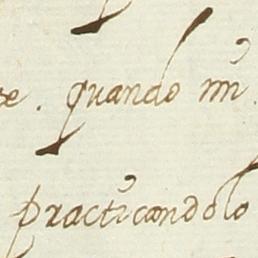 quando
practicandolo